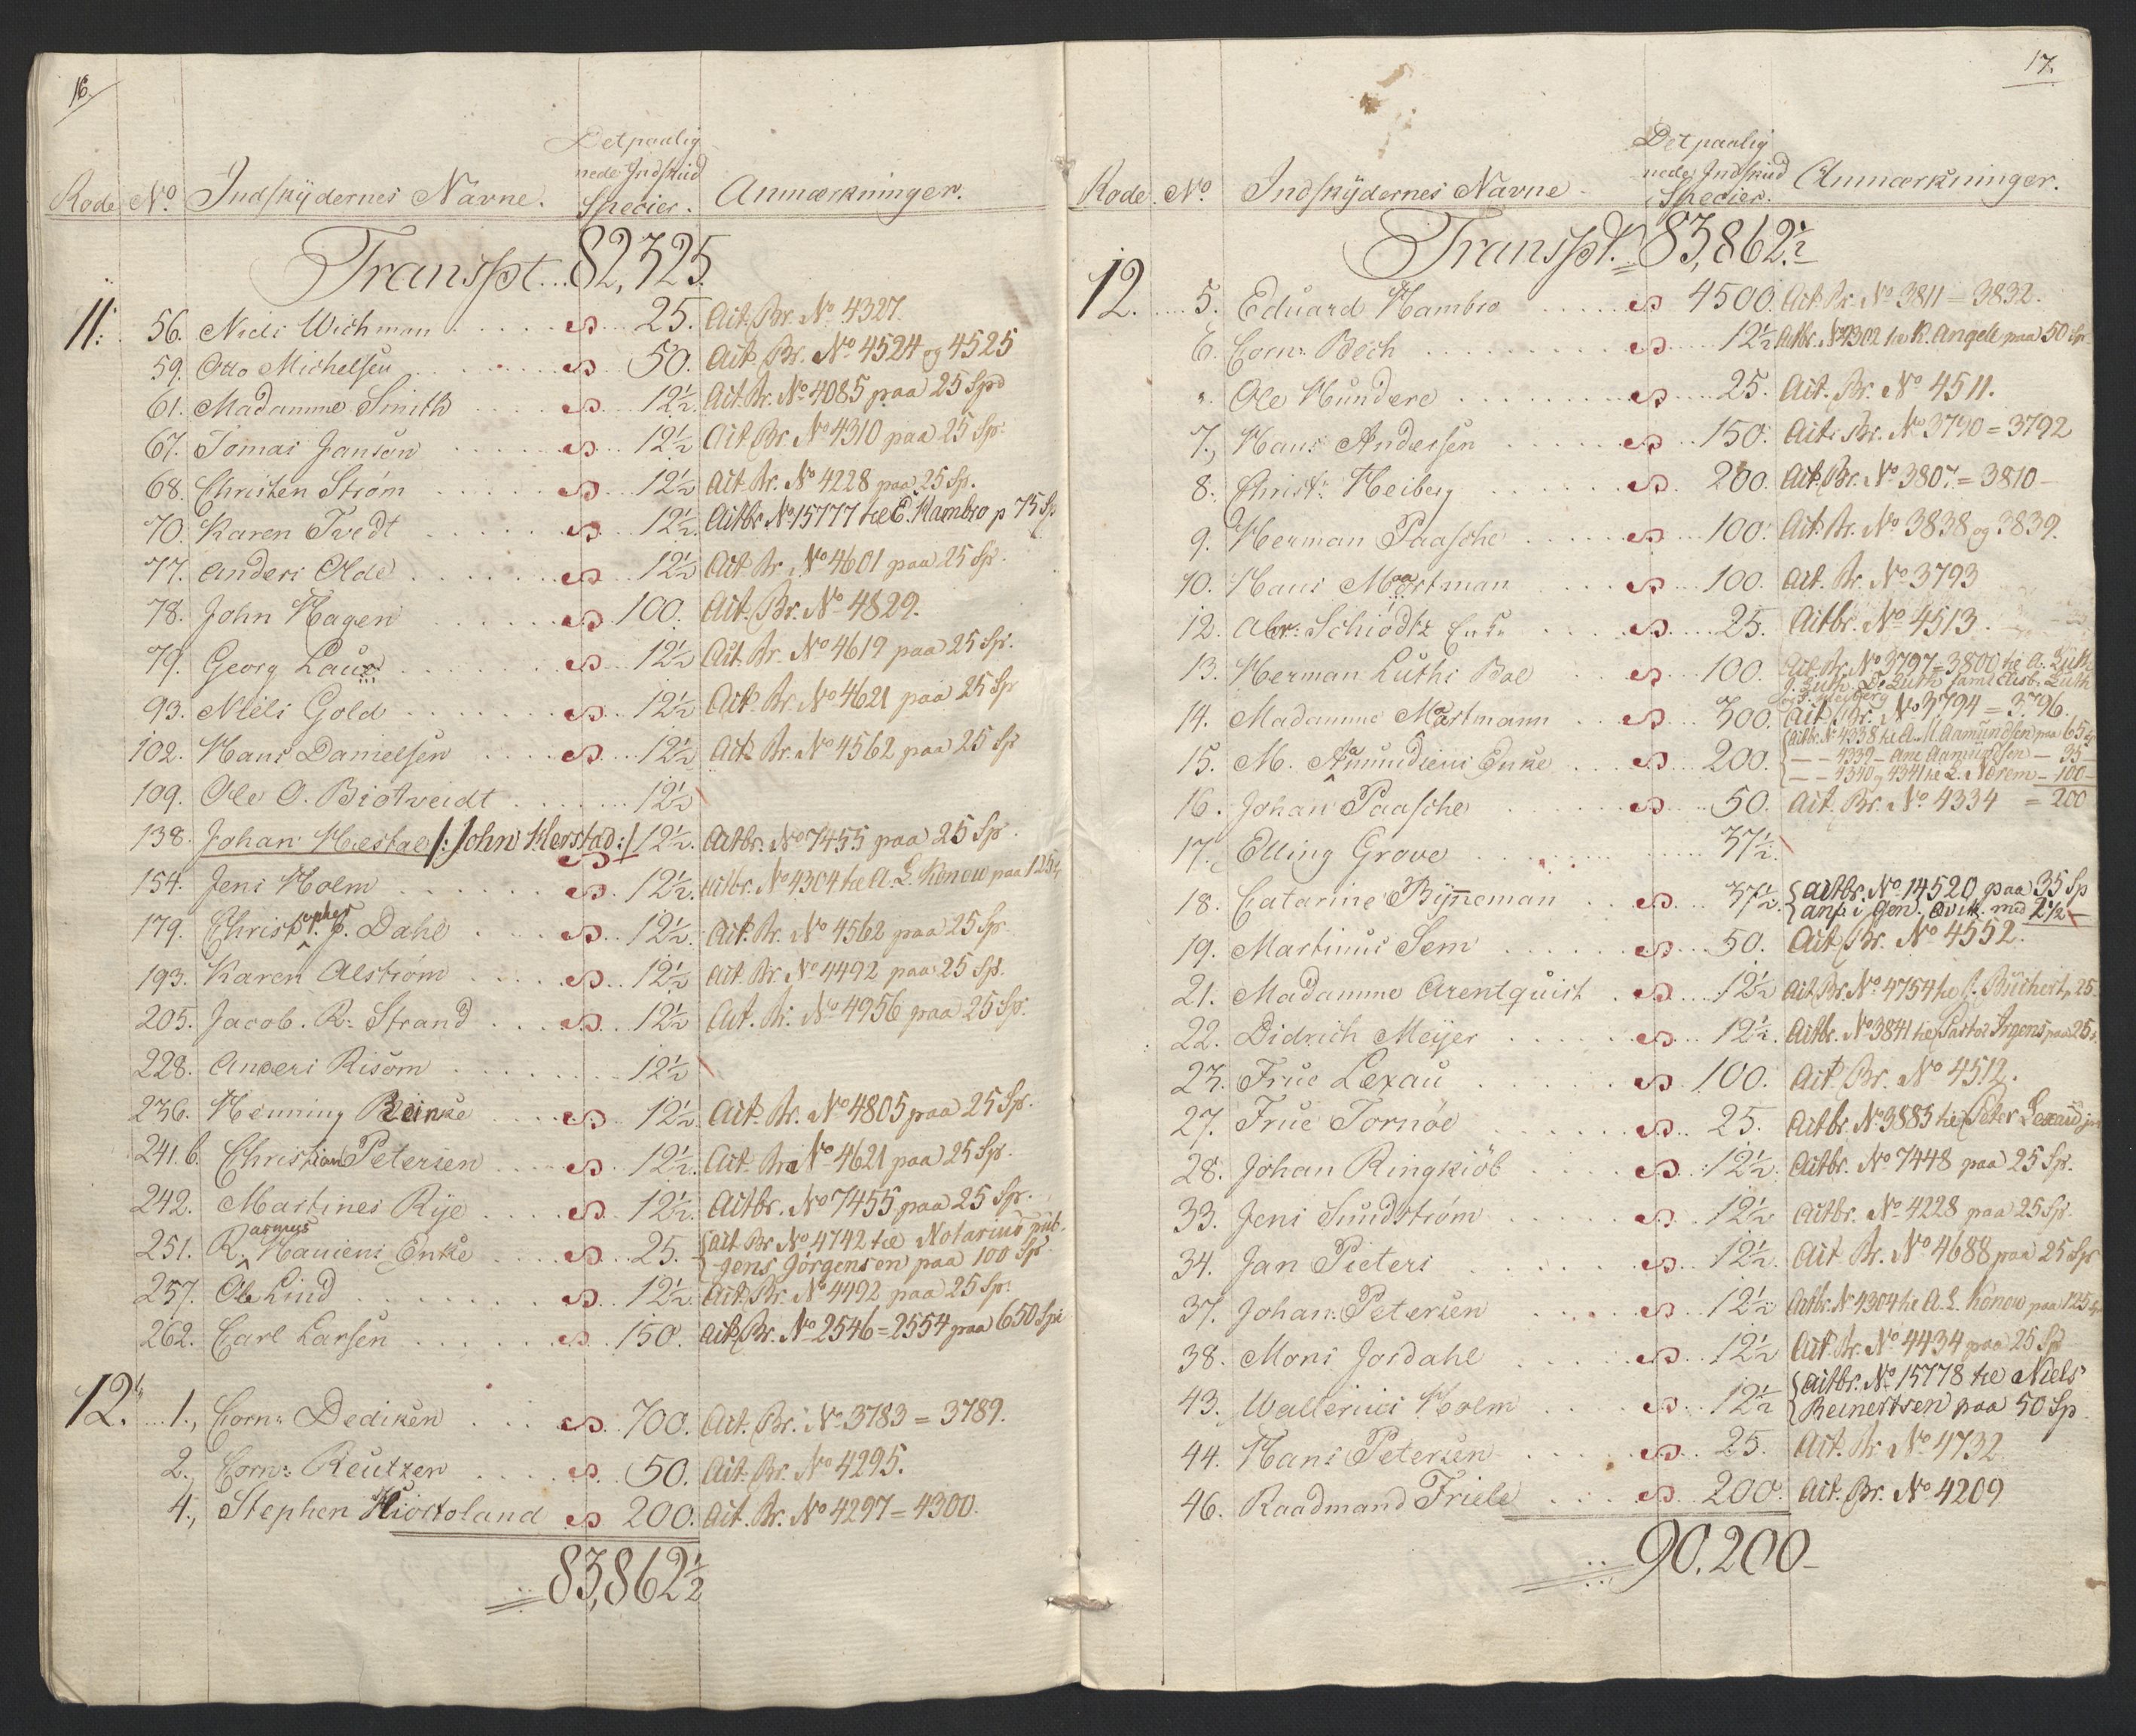 16.
Rode No. Indskydernes Navne. Det paalignede Indskud Species. Anmærkninger.
Transpt. 82,325.
11. 56. Niels Wichman 25. Act. Br. No 4327.
59. Otto Michelsen 50. Act. Br. No 4524 og 4525
61. Madamme Smith 12½ Act. Br. No 4085 paa 25 Spd
67. Tomas Janson 12½ Act. Br. No 4310 paa 25 Sp.
68. Christen Strøm 12½ Act. Br. No 4228 paa 25 Sp.
70. Karen Tvedt 12½ Actbr. No 15777 til E. Hambro p 75 Sp
77. Anders Olde 12½ Act. Br. No 4601 paa 25 Sp.
78. John Hagen 100. Act. Br. No 4829.
79. Georg Laus 12½ Act. Br. No 4619 paa 25 Sp.
93. Niels Gold 12½ Act. Br. No 4621 paa 25 Sp
102. Hans Danielsen 12½ Act. Br. No 4562 paa 25 Sp
109. Ole O. Biotveidt 12½
138. Johan Hestae /: John Herstad :/ 12½. Actbr. No 7455 paa 25 Sp.
154. Jens Holm 12½. Actbr. No 4304 til A. L. Konow paa 125 Sp
179. Christopher J. Dahl 12½. Act. Br. No 4562 paa 25 Sp.
193. Karen Alstrøm 12½ Act. Br. No 4492 paa 25 Sp.
205. Jacob. R. Strand 12½ Act. Br. No 4956 paa 25 Sp.
228. Anders Risom 12½
236. Henning Reinke 12½ Act. Br. No 4805 paa 25 Sp.
241. b. Christian Petersen 12½. Act. Br. No 4621 paa 25 Sp.
242. Martines Rye 12½. Actbr. No 7455 paa 25 Sp.
251. Rasmus Hansens Enke 25. Act. Br No 4742 til Notarius pub.
Jens Jörgensen paa 100 Sp.
257. Ole Lind 12½. Act. Br. No 4492 paa 25 Sp.
262. Carl Larsen 150. Act. Br. No 2546 = 2554 paa 650 Sp
12. 1., Corn: Dediken 700. Act. Br. No 3783 = 3789.
2., Corn: Reutzen 50. Act. Br. No 4295.
4., Stephen Hiortoland 200. Act. Br. No 4297 = 4300.
83,862½
17.
Rode. No. Indskydernes Navne Det paalignede Indskud Species. Anmærkninger.
Transpt. 83,862½
12. 5. Eduard Hambro 4500. Act. Br. No 3811 = 3832.
6. Corn: Bech 12½ Actbr. No 4302 til K. Angell paa 50 Sp
" Ole Hundere 25. Act. Br. No 4511.
7., Hans Andersen 150. Act. Br. No 3790 = 3792
8. Christ: Heiberg 200. Act. Br. No 3807 = 3810
9. Herman Paasche 100. Act. Br. No 3838 og 3839.
10. Hans Maartman 100. Act. Br. No 3793
12. Abr: Schiödtz Enke 25. Actbr. No 4513.
13. Herman Luths Boe 100. Act. Br. No 3797 = 3800 til A. Luth
J. Luth D. Luth samt Elisb. Luth
14. Madamme Maartmann 300. Act. Br. No 3794 = 3796.
15. M. Aamundsens Enke 200. Actbr. No 4338 til A. M. Aamundsen paa 65 Sp
— — 4339 — Ane Aamundsen — 35 —
— — 4340 og 4341 til L. Nerem — 100 —
16. Johan Paasche 50. Act. Br. No 4334 = 200
17. Elling Grove 37½.
18. Catarine Bijneman 37½. Actbr. No 14520 paa 35 Sp
anf. i Gen. Qvit. med 2½ —
19. Martinus Sem 50. Act. Br. No 4552.
21. Madamme Arentquist 12½ Act. Br. No 4754 til J. Büchert p 25
22. Didrich Meijer 12½. Actbr. No 3841 til Pastor Irgens paa 25 s.
23. Frue Lexau 100. Act. Br. No 4512.
27. Frue Tornöe 25. Actbr. No 3885 til Peter Lexau jun
28. Johan Ringkiöb 12½. Actbr. No 7448 paa 25 Sp.
33. Jens Sundstrøm 12½ Actbr. No 4228 paa 25 Sp.
34. Jan Pieters 12½. Act. Br. No 4688 paa 25 Sp
37. Johan: Petersen 12½ Actbr. No 4304 til A. L. Konow paa 125 Sp
38. Mons Jordahl 12½ Act. Br. No 4434 paa 25 Sp
43. Wallerius Holm 12½ Actbr. No 15778 til Niels
Reinertsen paa 50 Sp.
44. Hans Petersen 25. Act. Br No 4732
46. Raadmand Friele 200. Act. Br. No 4209
90.200